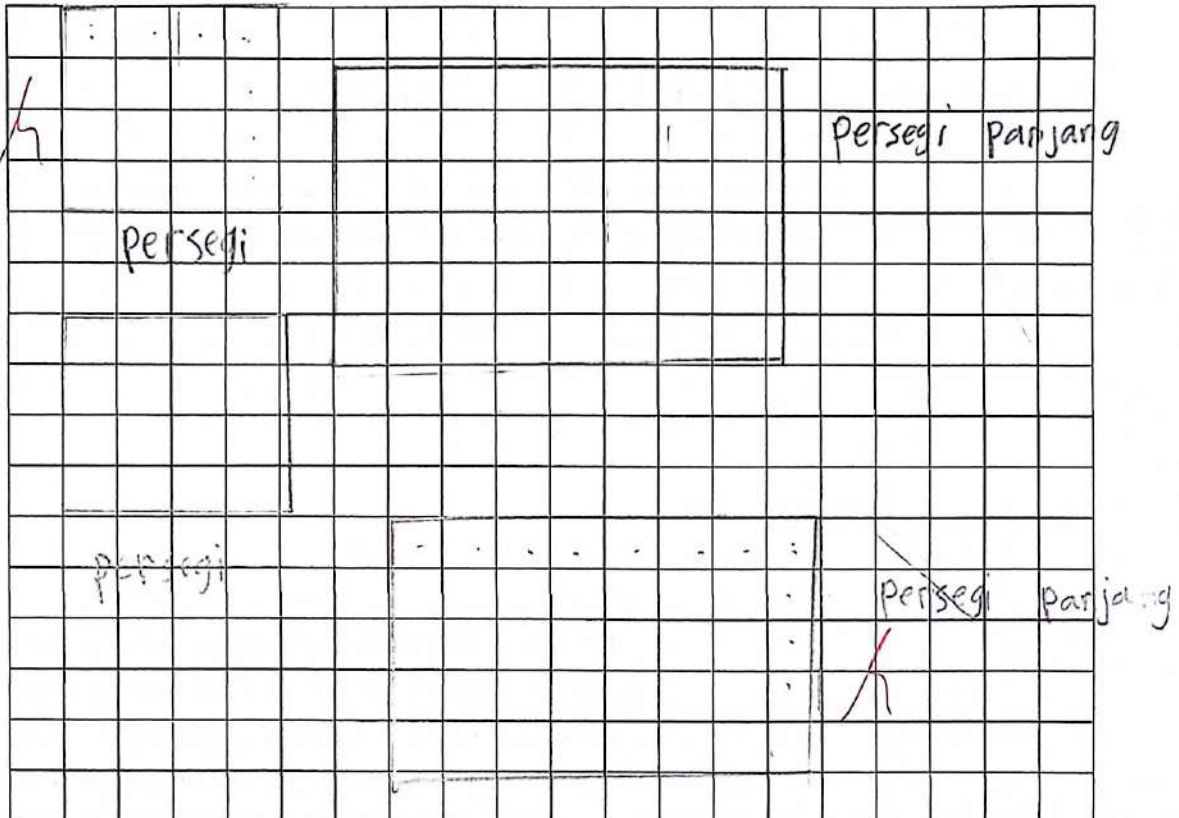 persegi panjang
persegi
persegi
persegi panjang